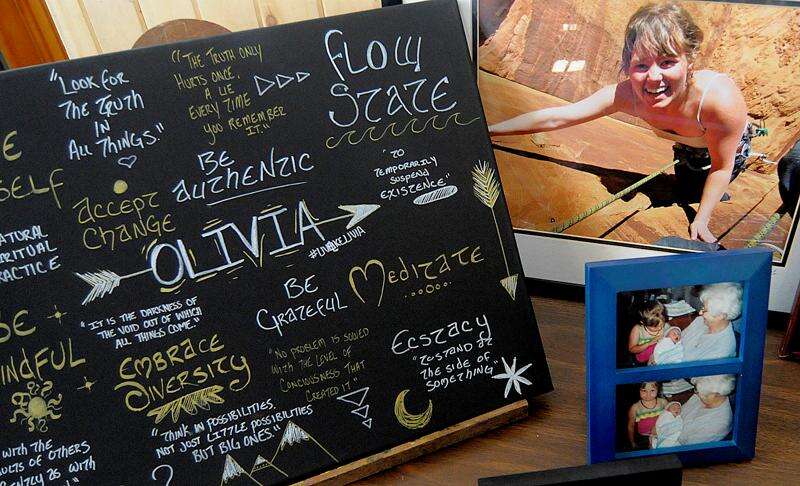 "LOOK FOR
THE TRUTH
IN
ALL THINGS."
"THE TRUTH ONLY
HURTS ONCE,
A LIE
EVERY TIME
YOU REMEMBER
IT."
FLOW
STATE
E
SELF
ACCEPT
CHANGE
BE
AUTHENTIC
"TO
TEMPORARILY
SUSPEND
EXISTENCE"
ATURAL
IRITUAL
RACTICE
OLIVIA
#LIVLIKELIVIA
BE
GRATEFUL
MEDITATE
BE
INDFUL
"IT IS THE DARKNESS OF
THE VOID OUT OF WHICH
ALL THINGS COME."
EMBRACE
DIVERSITY
"NO PROBLEM IS SOLVED
WITH THE LEVEL OF
CONCIOUSNESS THAT
CREATED IT"
ECSTACY
"TO STAND AT
THE SIDE OF
SOMETHING"
WITH THE
OF OTHERS
AS WITH
"THINK IN POSSIBILITIES,
NOT JUST LITTLE POSSIBILITIES
BUT BIG ONES."